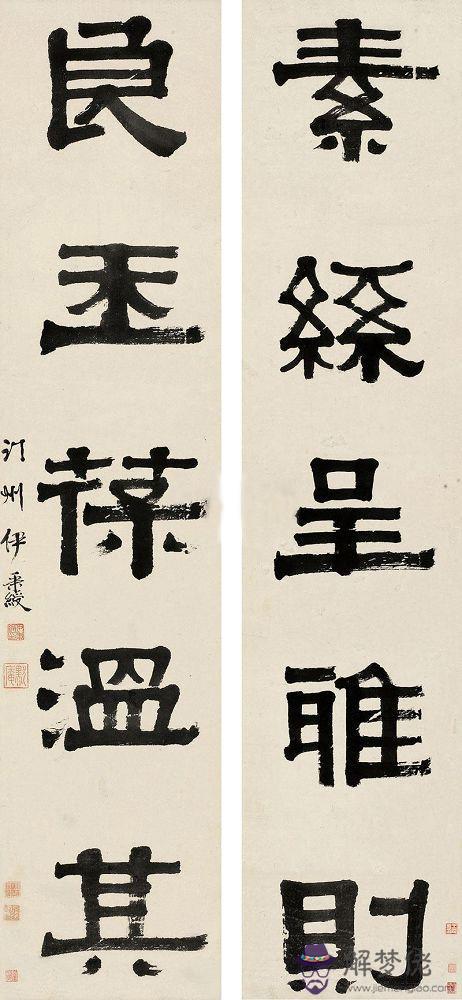 素絲呈雅則
良玉葆溫其
汀州伊秉綬
解梦佬
www.jiemenglao.com